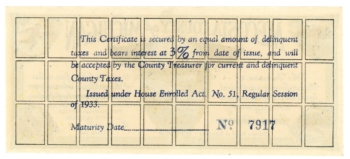 This Certificate is secured by an equal amount of delinquent
taxes and bears interest at 3% from date of issue, and will
be accepted by the County Treasurer for current and delinquent
County Taxes.
Issued under House Enrolled Act. No. 51, Regular Session
of 1933.
Maturity Date
No 7917